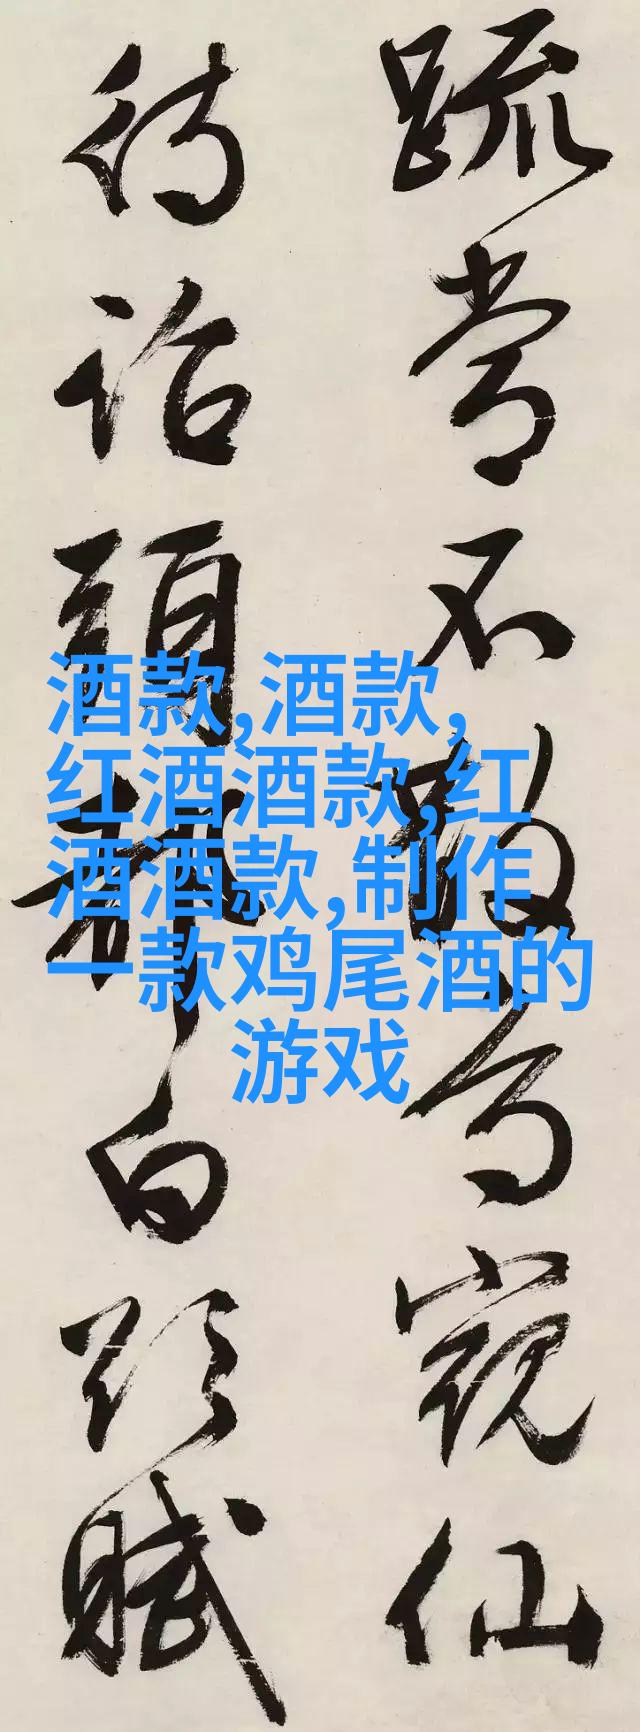 常不敢窺仙
待詔頭白賦
酒款,酒款,
红酒酒款,红
酒酒款,制作
一款鸡尾酒的
游戏